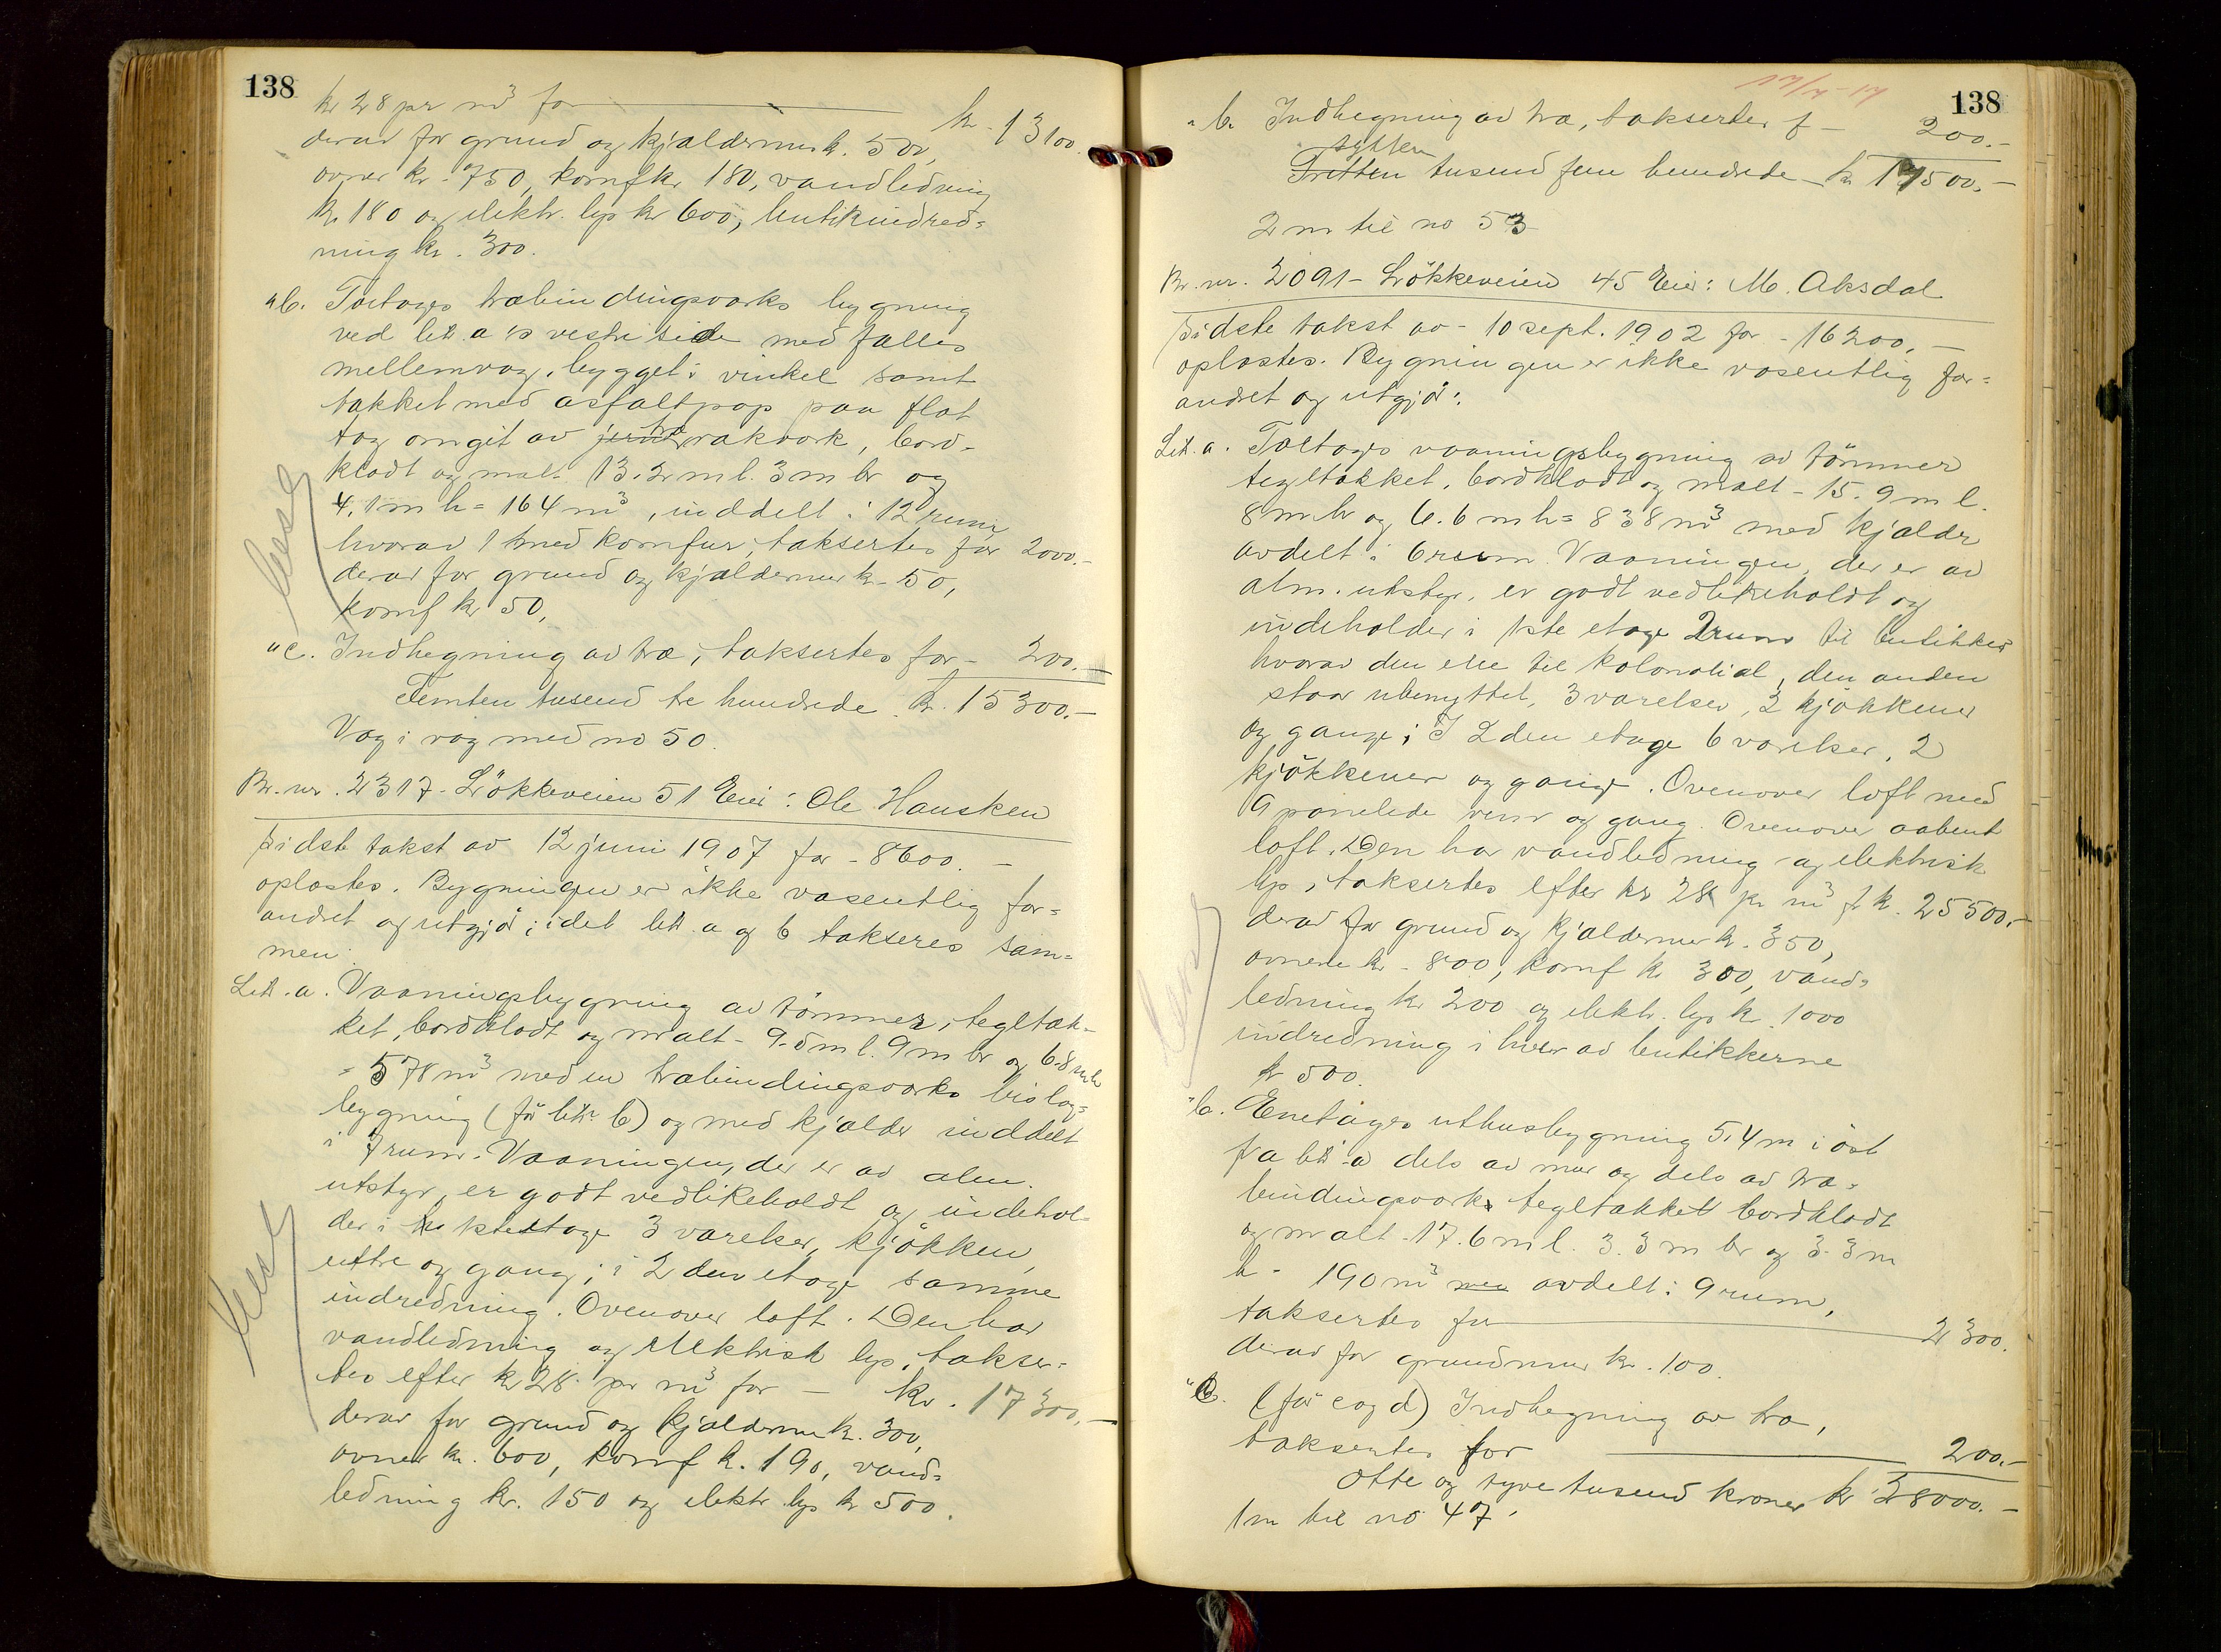 138
kr 28 pr m³ for kr. 13100.
derav for grund og kjældermur k. 500,
ovner kr. 750, komf kr 180, vandledning
kr 180 og elektr. lys kr 600, butikindred=
ning kr. 300.
"b. Toetages træbindingsverks bygning
ved lit. a's vestre side med fælles
mellemvæg, bygget i vinkel samt
tækket med asfaltpap paa flat
tag omgit av træ rækverk, bord-
klædt og malt 13.2 m l. 3 m br og
4.1 m h = 164 m³, inddelt i 12 rum
hvorav 1 med komfur, taksertes for 2000.-
derav for grund og kjældermur k. 50,
komf kr 50,
"c. Indhegning av træ, taksertes for - 200.-
Femten tusend tre hundrede kr. 15300.-
Væg i væg med no 50.
Br. nr. 2317 - Lökkeveien 51 Eier: Ole Hausken
Sidste takst av 12 juni 1907 for - 8600.-
oplæstes. Bygningen er ikke væsentlig for=
andret og utgjør; idet lit. a og b takseres sam=
men
Lit. a. Vaaningsbygning av tömmer, tegltæk-
ket, bordklædt og malt - 9.5 m l. 9 m br og 6.8 m h
= 578 m³ med en træbindingsverks bislag=
bygning (før litr b) og med kjælder inddelt
i 7 rum. Vaaningen, der er av alm.
utstyr, er godt vedlikeholdt og indehol-
der i 1ste etage 3 værelser, kjökken,
entre og gang; i 2den etage samme
indredning. Ovenover loft. Den har
vandledning og elektrisk lys, takser=
tes efter kr 28 pr m³ for - kr. 17300.-
derav for grund og kjældermur k. 300,
ovner kr. 600, komf k. 190, vand=
ledning kr. 150 og elektr. lys kr 500.
138
"b. Indhegning av træ, taksertes f - 200.-
sytten
Tretten tusend fem hundrede - kr 17500.-
2 m til no 53
Br. nr. 2091 - Lökkeveien 45 Eier: M. Aksdal
Sidste takst av - 10 sept. 1902 for - 16200.-
oplæstes. Bygningen er ikke væsentlig for=
andret og utgjør:
Lit. a. Toetages vaaningsbygning av tömmer
tegltækket, bordklædt og malt - 15.9 m l.
8 m br og 6.6 m h = 838 m³ med kjælder
avdelt i 6 rum. Vaaningen, der er av
alm. utstyr, er godt vedlikeholdt og
indeholder i 1ste etage 2 rum til butikker
hvorav den ene til kolonial, den anden
staar ubenyttet, 3 værelser, 2 kjökkener
og gange; I 2den etage 6 værelser, 2
kjökkener og gange. Ovenover loft med
9 panelede rum og gang. Ovenover aabent
loft. Den har vandledning og elektrisk
lys, taksertes efter kr 28 pr m³ f k. 25500.-
derav for grund og kjældermur k. 350,
ovnene kr. 800, komf kr 300, vand=
ledning kr 200 og elektr. lys k. 1000
indredning i hver av butikkerne
kr 500.
"b. Enetages uthusbygning 5.4 m i öst
fra lit a dels av mur og dels av træ=
bindingsverk, tegltækket bordklædt
og malt - 17.6 m l. 3.3 m br og 3.3 m
h - 190 m³ avdelt i 9 rum,
taksertes for 2300.
derav for grundmur kr. 100.
"c. (før c og d) Indhegning av træ,
taksertes for 200.-
Otte og tyve tusend kroner kr 28000.-
1 m til no 47.